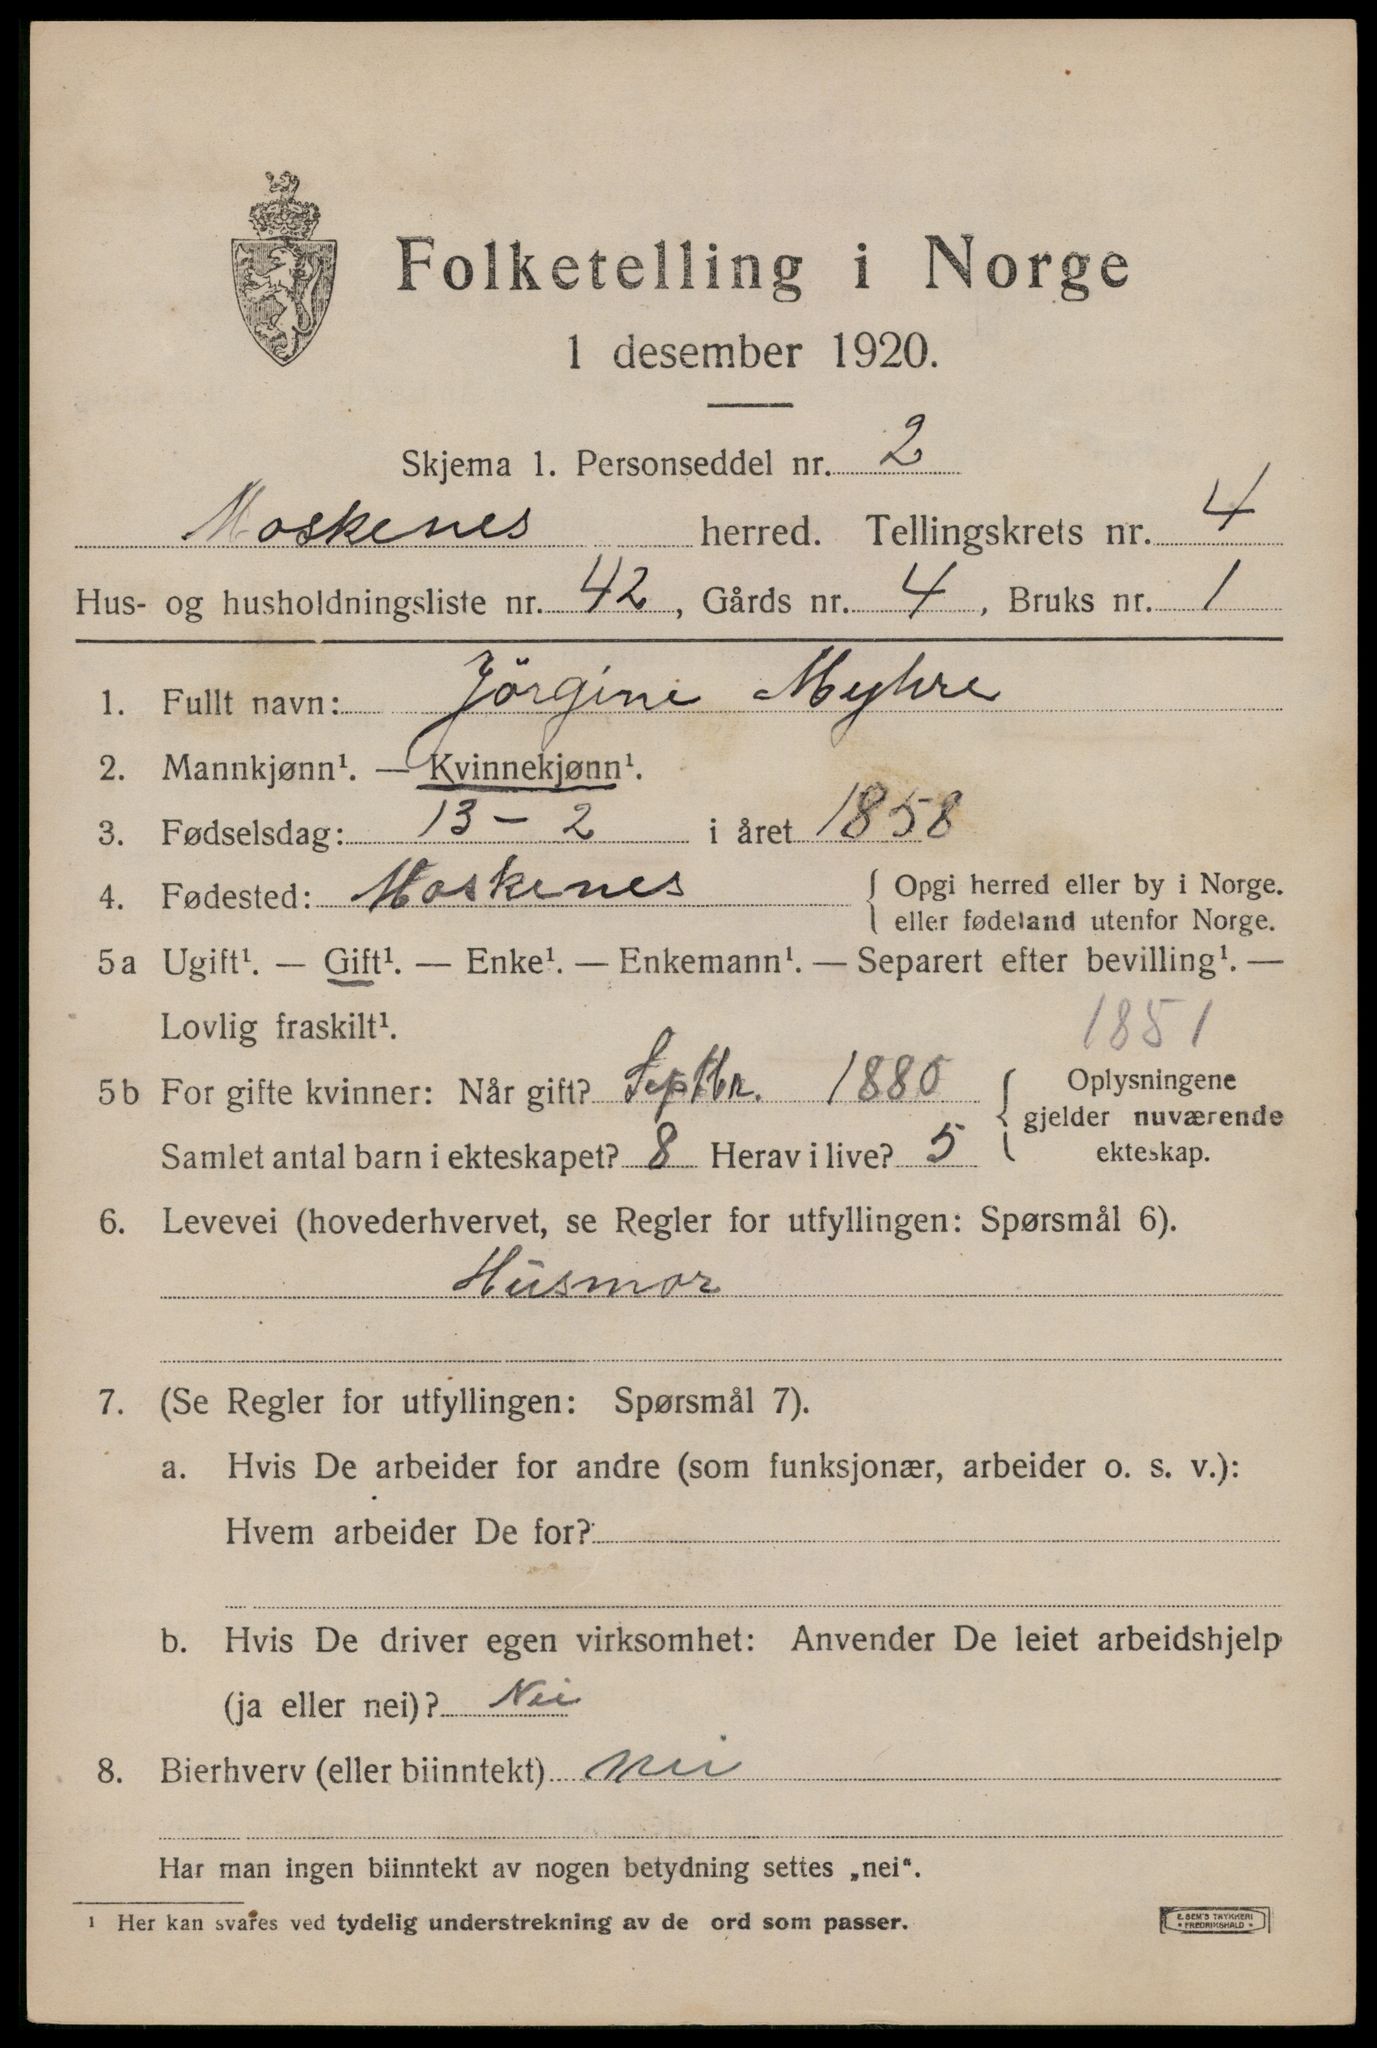 Folketelling i Norge
1 desember 1920.
Skjema 1. Personseddel nr. 2
Moskenes herred. Tellingskrets nr. 4
Hus- og husholdningsliste nr. 42, Gårds nr. 4, Bruks nr. 1
1. Fullt navn: Jörgine Myhre
2. Mannkjønn¹. — Kvinnekjønn¹.
3. Fødselsdag: 13 - 2 i året 1858
4. Fødested: Moskenes { Opgi herred eller by i Norge.
eller fødeland utenfor Norge.
5a Ugift¹. — Gift¹. — Enke¹. — Enkemann¹. — Separert efter bevilling¹. —
Lovlig fraskilt¹.
1851
5b For gifte kvinner: Når gift? Septbr. 1880 { Oplysningene
gjelder nuværende
Samlet antal barn i ekteskapet? 8 Herav i live? 5 ekteskap.
6. Levevei (hovederhvervet, se Regler for utfyllingen: Spørsmål 6).
Husmor
7. (Se Regler for utfyllingen: Spørsmål 7).
a. Hvis De arbeider for andre (som funksjonær, arbeider o. s. v.):
Hvem arbeider De for?
b. Hvis De driver egen virksomhet: Anvender De leiet arbeidshjelp
(ja eller nei)? Nei
8. Bierhverv (eller biinntekt) nei
Har man ingen biinntekt av nogen betydning settes „nei“.
¹ Her kan svares ved tydelig understrekning av de ord som passer.
E. SEM'S TRYKKERI
FREDRIKSHALD